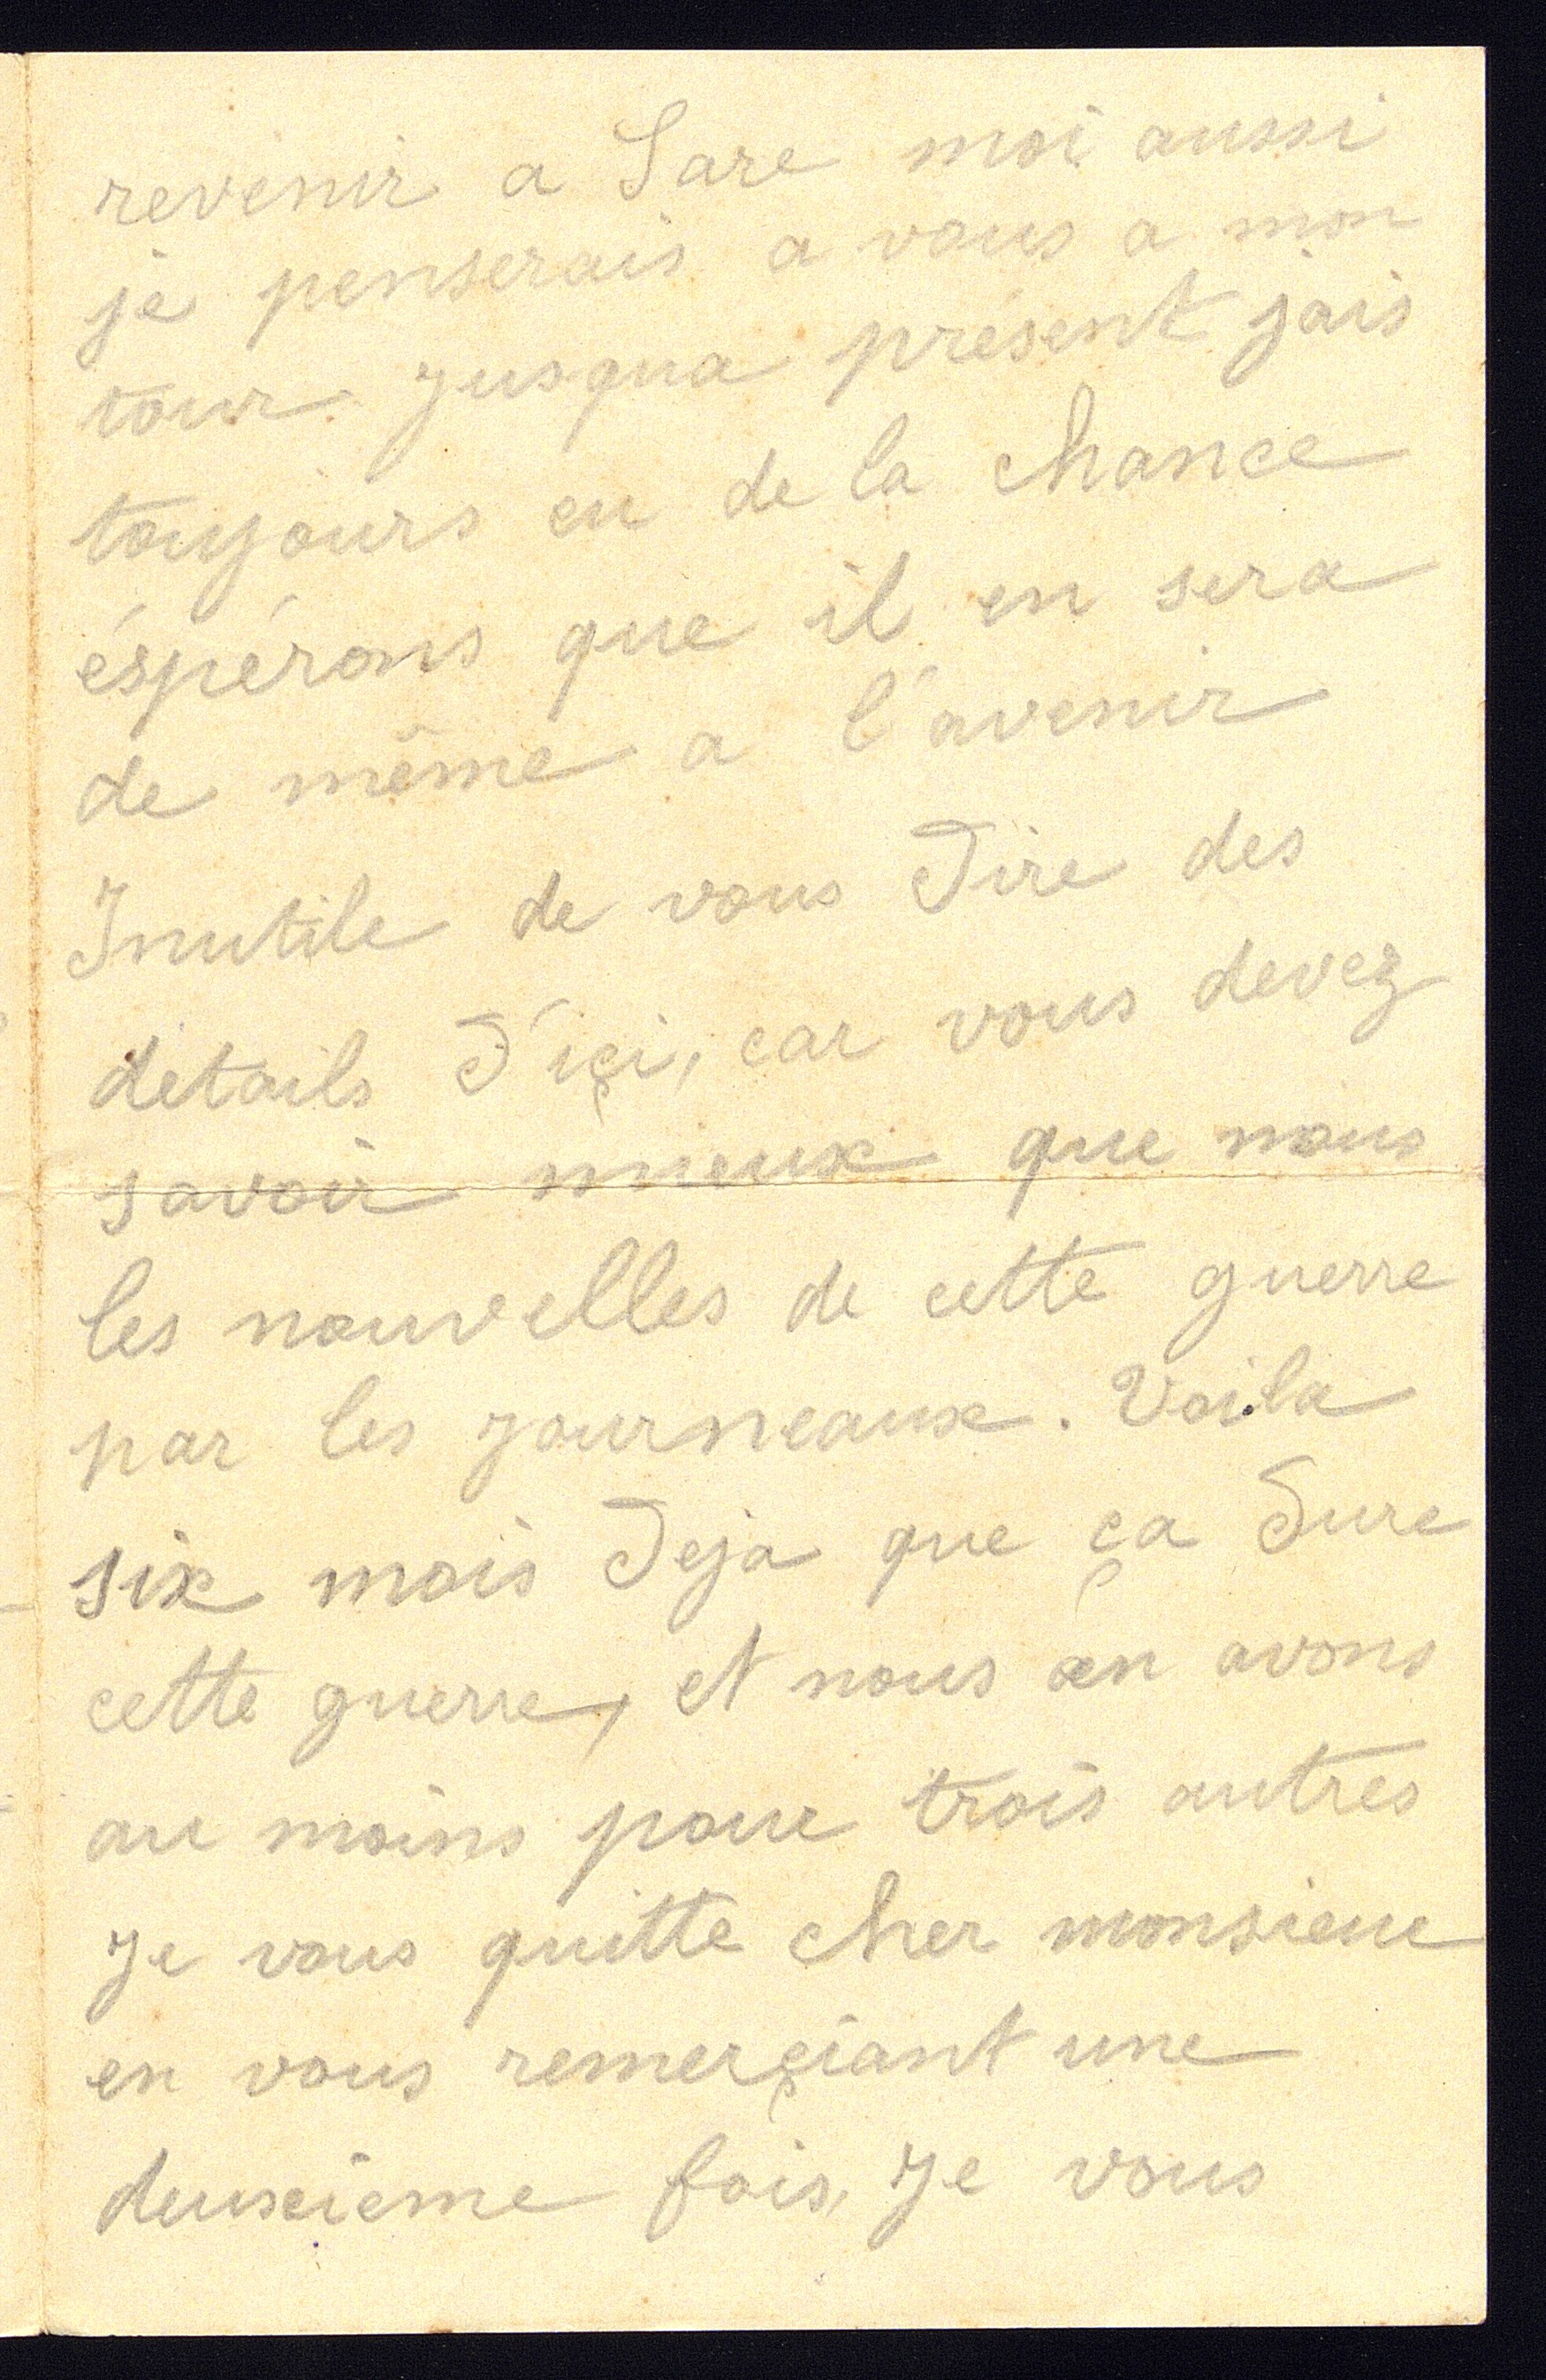 revenir a Sare moi aussi
je penserais a vous a mon
tour jusqua présent jais
toujours eu de la chance
éspérons que il en sera
de même a l'avenir
Inutile de vous dire des
details d'içi, car vous devez
savoir mieux que nous
les nouvelles de cette guerre
par les journeaux. Voila
six mois deja que ça dure
cette guerre, et nous en avons
au moins pour trois autres
Je vous quitte cher monsieur
en vous remerçiant une
deuxieme fois, Je vous